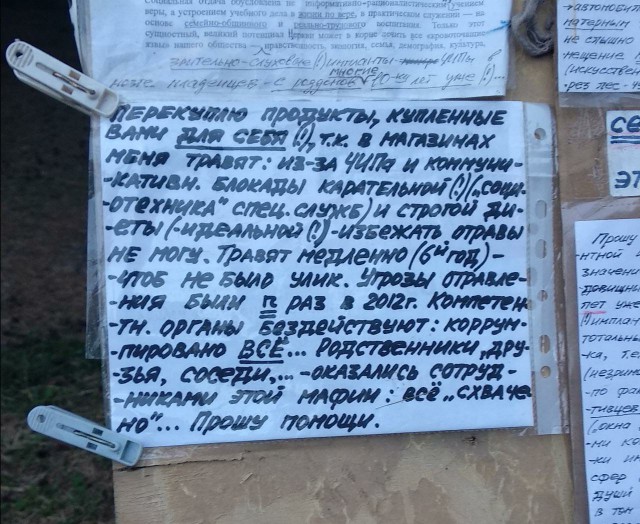 социальная отдача обусловлена не информативно-рационалистическим учением
веры, а устроением учебного дела в жизни по вере, в практическом служении — на
основе семейно-общинного и реально-трудового воспитания. Только этот
сущностный, великий потенциал Церкви может в корне довить все
язвы нашего общества - нравственность, экология, семья, демография, культура,
зрительно-слуховые (!) импланты ЧИПы
мозге младенцев - с роддомов многие ку лет уже (!)...
ПЕРЕКУПЛЮ ПРОДУКТЫ, КУПЛЕННЫЕ
ВАМИ ДЛЯ СЕБЯ (!), Т.К. В МАГАЗИНАХ
МЕНЯ ТРАВЯТ: ИЗ-ЗА ЧИПа И КОММУНИ-
-КАТИВН. БЛОКАДЫ КАРАТЕЛЬНОЙ (!) („СОЦИ-
-ОТЕХНИКА" СПЕЦ. СЛУЖБ) И СТРОГОЙ ДИ-
-ЕТЫ (-ИДЕАЛЬНОЙ (!) -ИЗБЕЖАТЬ ОТРАВЫ
НЕ МОГУ. ТРАВЯТ МЕДЛЕННО (6й ГОД) -
-ЧТОБ НЕ БЫЛО УЛИК. УГРОЗЫ ОТРАВЛЕ-
-НИЯ БЫЛИ n РАЗ В 2012г. КОМПЕТЕН-
ТН. ОРГАНЫ БЕЗДЕЙСТВУЮТ: КОРРУМ-
-ПИРОВАНО ВСЁ... РОДСТВЕННИКИ, ДРУ-
-ЗЬЯ, СОСЕДИ,... -ОКАЗАЛИСЬ СОТРУД-
-НИКАМИ ЭТОЙ МАФИИ: ВСЁ „СХВАЧЕ
НО"... ПРОШУ ПОМОЩИ.
-автомобил
матерным
не слышно
мещение
(искусствен
рез лес - 45
СЕ
ЭТ
Прошу
-нтной
значени
-довищны
лет уже
(!) имплан
тотальны
-ка, т.е.
(незрим
-по фак
-тивцев
(„окна
-ми ко
-ки ин
сфер
души
в том